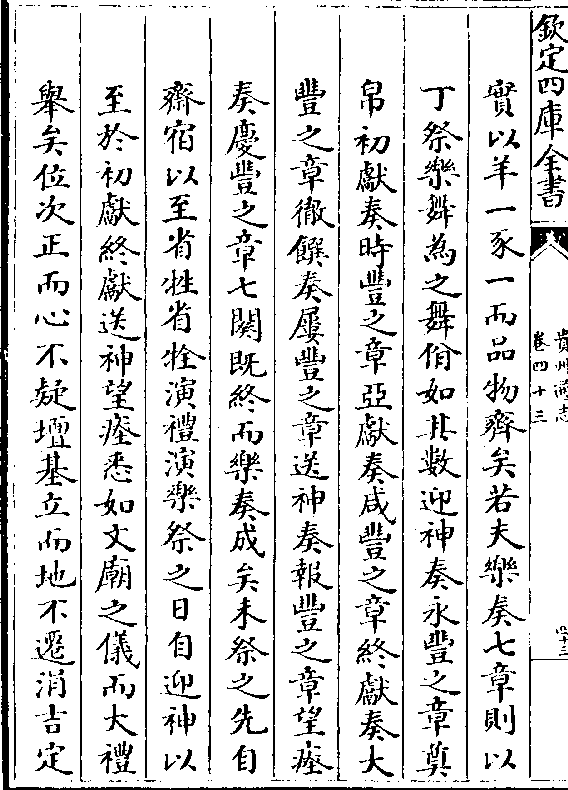 欽定四庫全書
貴州通志
卷四十三
實以羊一豕一而品物齊矣若夫樂奏七章則以
丁祭樂舞為之舞佾如其數迎神奏永豐之章奠
帛初獻奏時豐之章亞獻奏咸豐之章終獻奏大
豐之章徹饌奏屢豐之章送神奏報豐之章望瘞
奏慶豐之章七闋既終而樂奏成矣未祭之先自
齋宿以至省牲省牷演禮演樂祭之日自迎神以
至於初獻終獻送神望瘞悉如文廟之儀而大禮
舉矣位次正而心不疑壇基立而地不遷涓吉定